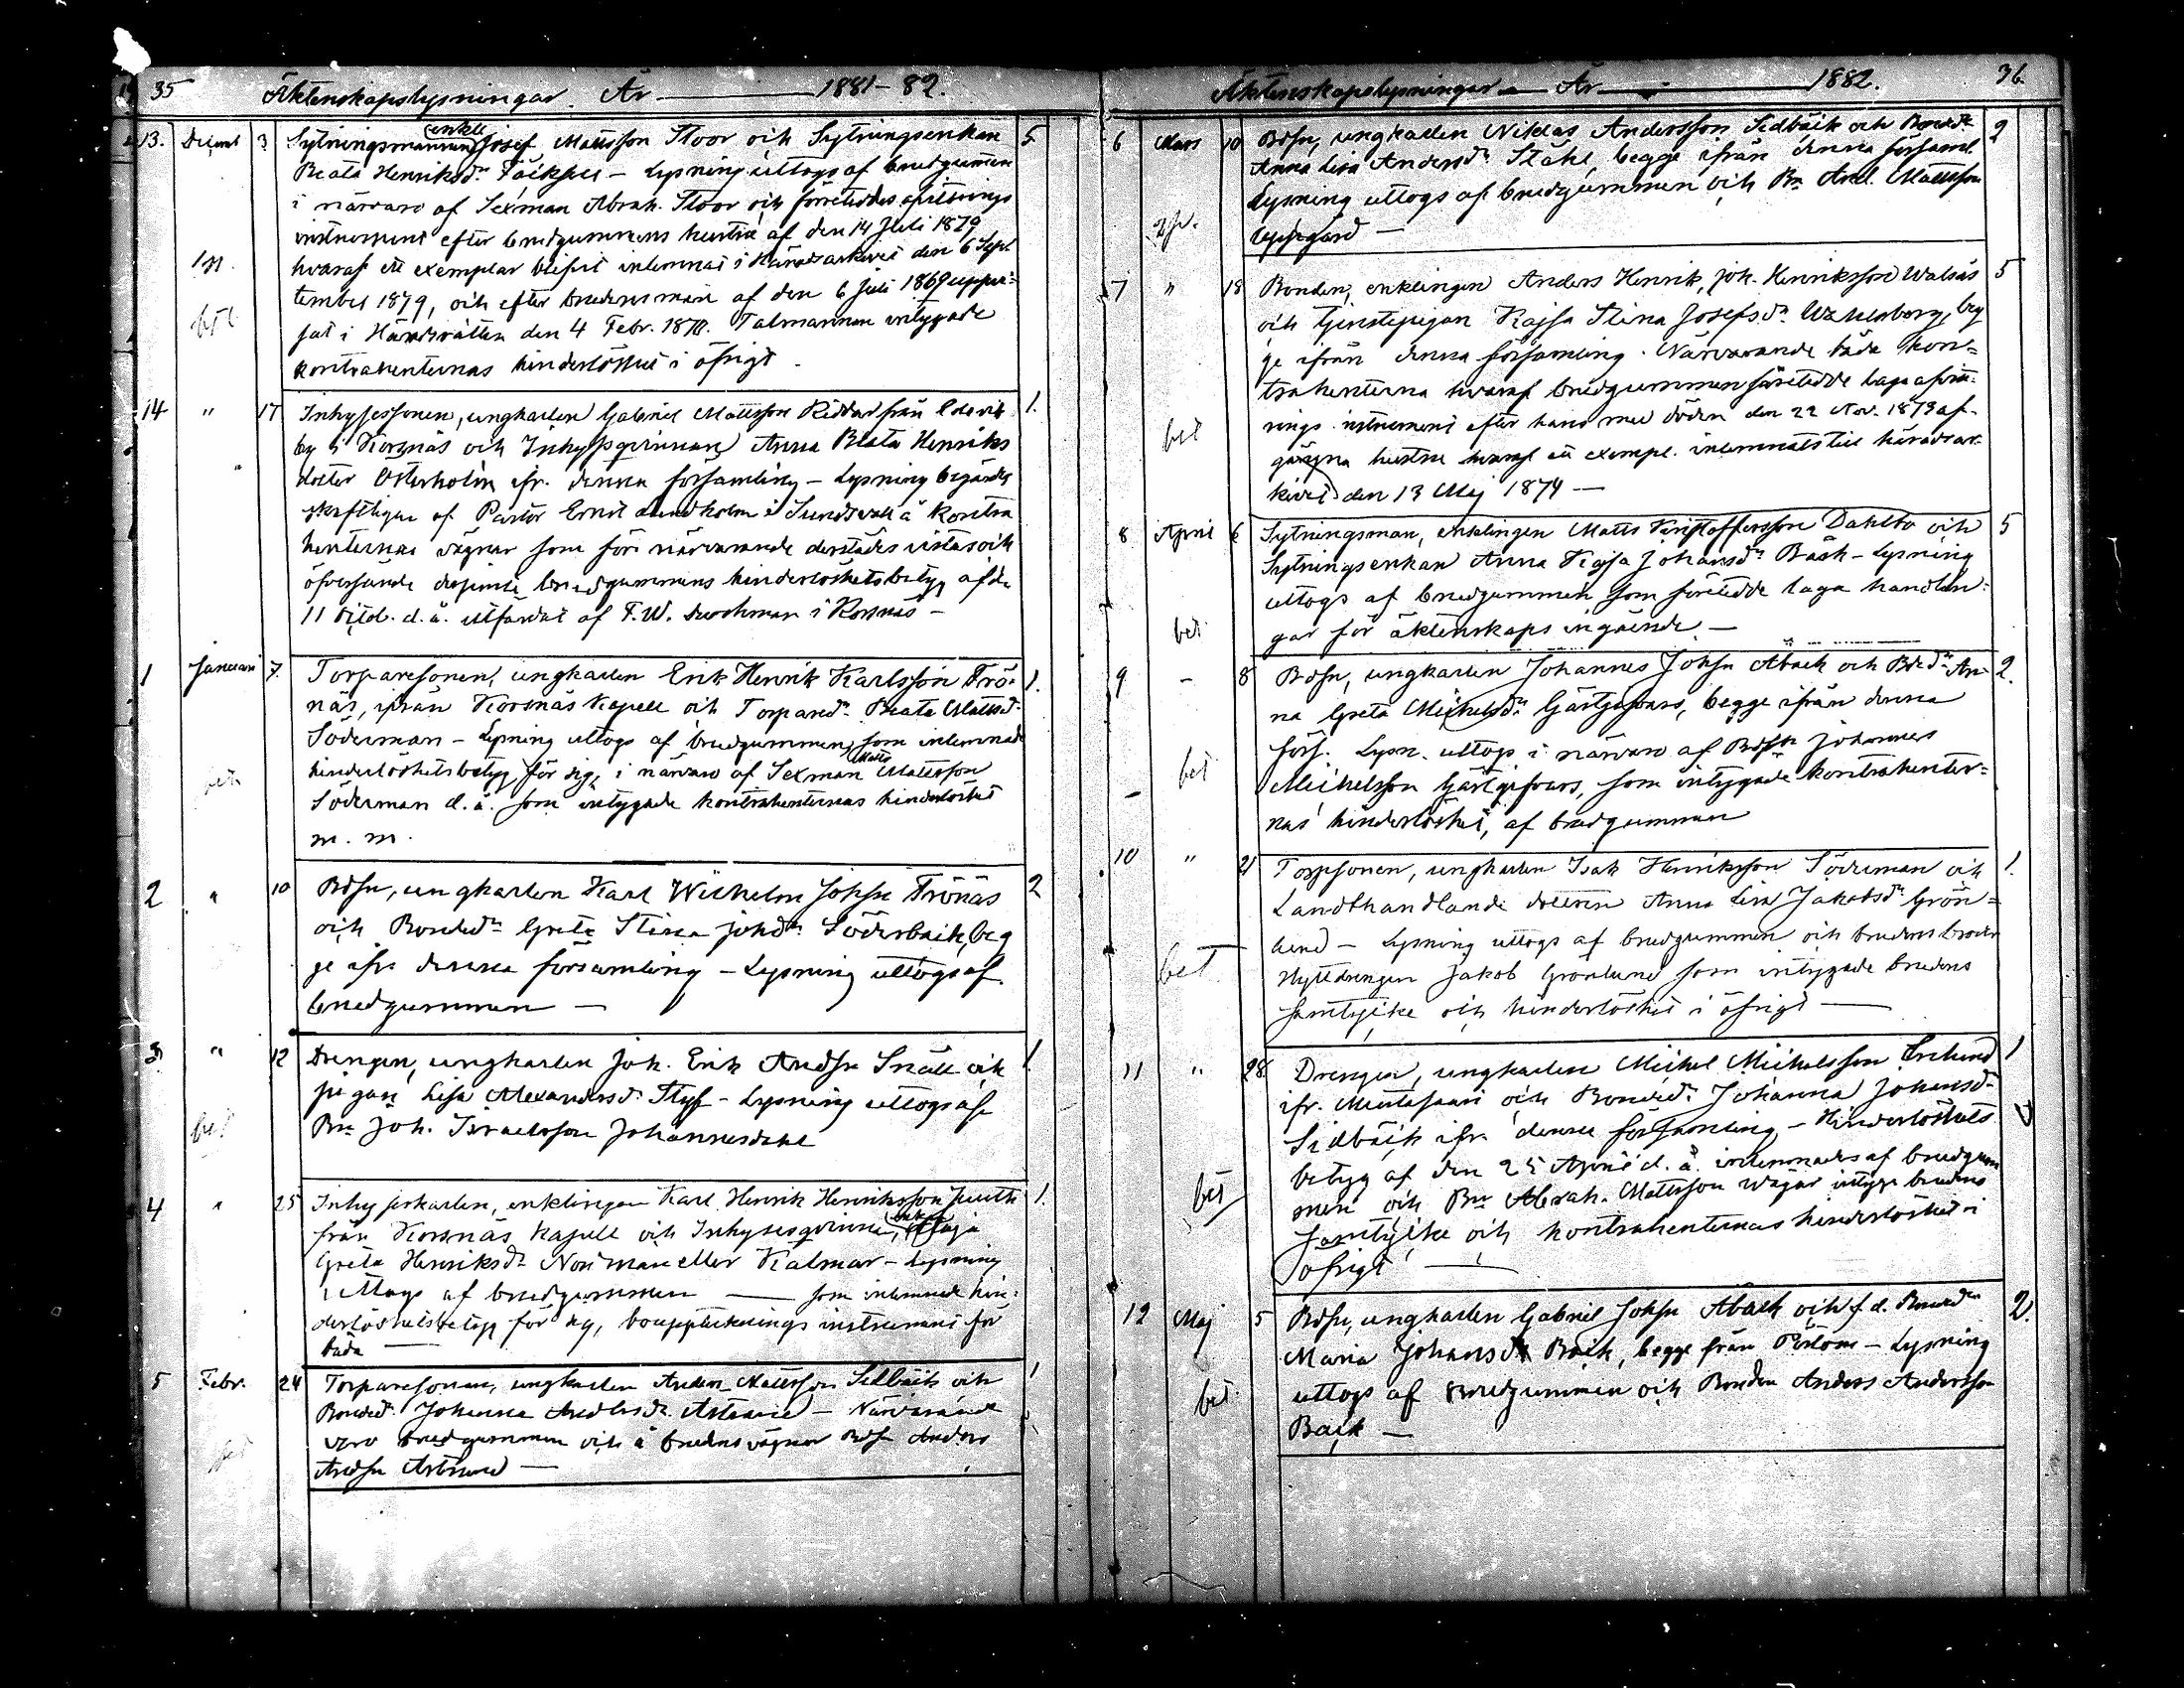 35 Äktenskapslysningar. År 1881-82.
13. Decemb 3 Sytningsmannen, enkl. Josef Mattsson Stoor och Sytningsenkan 5
Beata Henriksdr – Lysning uttogs af brudgummen
i närvaro af Sexman Abrah. Stoor och företeddes afvittrings
instrument efter brudgummens hustru af den 14 Juli 1879
hvaraf ett exemplar blifvit inlemnat i Häradsarkivet den 6 Sep
tember 1879, och efter brudens man af den 6 Juli 1869 uppvi=
sat i Häradsrätten den 4 Febr. 1870. Talmannen intygade
bet
kontrahenternas hinderlöshet i öfrigt.
14 " 17 Inhysessonen, ungkarlen Gabriel Mattsson Riddar från Edsvik 1.
by i Korsnäs och Inhysesqvinnan Anna Beata Henriks
dotter Österholm ifr. denna församling – Lysning begärdes
skriftligen af Pastor Ernst Lindholm i Sundsvall å kontra
henternas vägnar som för närvarande derstädes vistas och
öfversände desjemte brudgummens hinderlöshetsbetyg af den
11 d. å. utfärdat af F. W. i Korsnäs –
1 Januari 7. Torparesonen, ungkarlen Erik Henrik Karlsson Trö= 1.
näs, ifrån Korsnäs Kapell och Torparedr. Beata Mattsdr
Söderman – Lysning uttogs af brudgummen, som inlemnade
hinderlöshetsbetyg för sig, i närvaro af Sexman Matts Mattsson
bet
Söderman d. ä. som intygade kontrahenternas hinderlöshet
m. m.
2 " 10 Bdsn, ungkarlen Karl Wilhelm Johsn Trönäs 2
och Bondedr Greta Stina Johdr Söderback, beg
ge ifr. denna församling – Lysning uttogs af
brudgummen –
3 " 12 Drengen, ungkarlen Joh. Erik Andsn Snäll och 1
pigan Lisa Alexandersdr Styf – Lysning uttogs af
bet
Bn Joh. Israelsson Johannesdahl
4 " 25 Inhyseskarlen, enklingen Karl Henrik Henriksson Juuth 1.
från Korsnäs Kapell och Inhysesqvinnan, enkan Kajsa
Greta Henriksdr Norrman eller Kalmar – Lysning
uttogs af brudgummen — som inlemnade hin=
derlöshetsbetyg för sig, bouppteknings instrument för
båda —
5 Febr. 24 Torparesonen, ungkarlen Anders Mattsson Sidbäck och 1
Bondedr. Johanna Andersdr Åstrand – Närvarande
voro brudgummen och å brudens vägnar Bdsn Anders
bet
Andsn Åstrand —
Äktenskapslysningar År 1882. 36
6 Mars 10 Bdsn, ungkarlen Niklas Andersson Sidbäck och Bondedr 2
Anna Lisa Andersdr Ståhl, begge ifrån denna församl.
Lysning uttogs af brudgummen och Bn And. Mattsson
Uppgård —
7 " 18 Bonden, enklingen Anders Henrik, Joh. Henriksson Walsäs 5
och Tjenstepigan Kajsa Stina Josefsdr Wakenborg, beg
ge ifrån denna församling. Närvarande båda kon=
trahenterna hvaraf brudgummen företedde laga afvitt=
rings instrument efter hans med döden den 22 Nov. 1873 af=
bet
gångna hustru hvaraf ett exempl. inlemnats till häradsar=
kivet den 13 Maj 1874 —
8 April 6 Sytningsman, enklingen Matts Kristoffersson Dahlbo och 5
Sytningsenkan Anna Kajsa Johansdr Bäck – Lysning
uttogs af brudgummen som företedde laga handlin=
bet
gar för äktenskaps ingående –
9 – 8 Bdsn, ungkarlen Johannes Johsn Åback och Bdedr An= 2.
na Greta Michelsdr Gästgifvars, begge ifrån denna
förs. Lysn. uttogs i närvaro af Bdsn Johannes
bet
Michelsson Gästgifvars, som intygade kontrahenter=
nas hinderlöshet, af brudgummen
10 " 21 Torpsonen, ungkarlen Isak Henriksson Söderman och 1.
Landthandlande dottren Anna Lisa Jakobsdr Grön=
lund – Lysning uttogs af brudgummen och brudens broder
bet
Jakob Grönlund som intygade brudens
samtycke och hinderlöshet i öfrigt —
11 " 28 Drengen, ungkarlen Michel Michelsson Enlund 1
ifr. Mustasaari och Bondedr. Johanna Johansdr
Sidbäck ifr. denna församling – Hinderlöshets
betyg af den 25 April d. å. inlemnades af brudgum
bet
men och Bn Abrah. Mattsson Wägar intyga brudens
samtycke och kontrahenternas hinderlöshet i
öfrigt —
12 Maj 5 Bdsn, ungkarlen Gabriel Johsn Åback och f.d. Bondedr 2.
Maria Johansdr Back, begge från Pörtom – Lysning
bet
uttogs af brudgummen och Bonden Anders Andersson
Back –